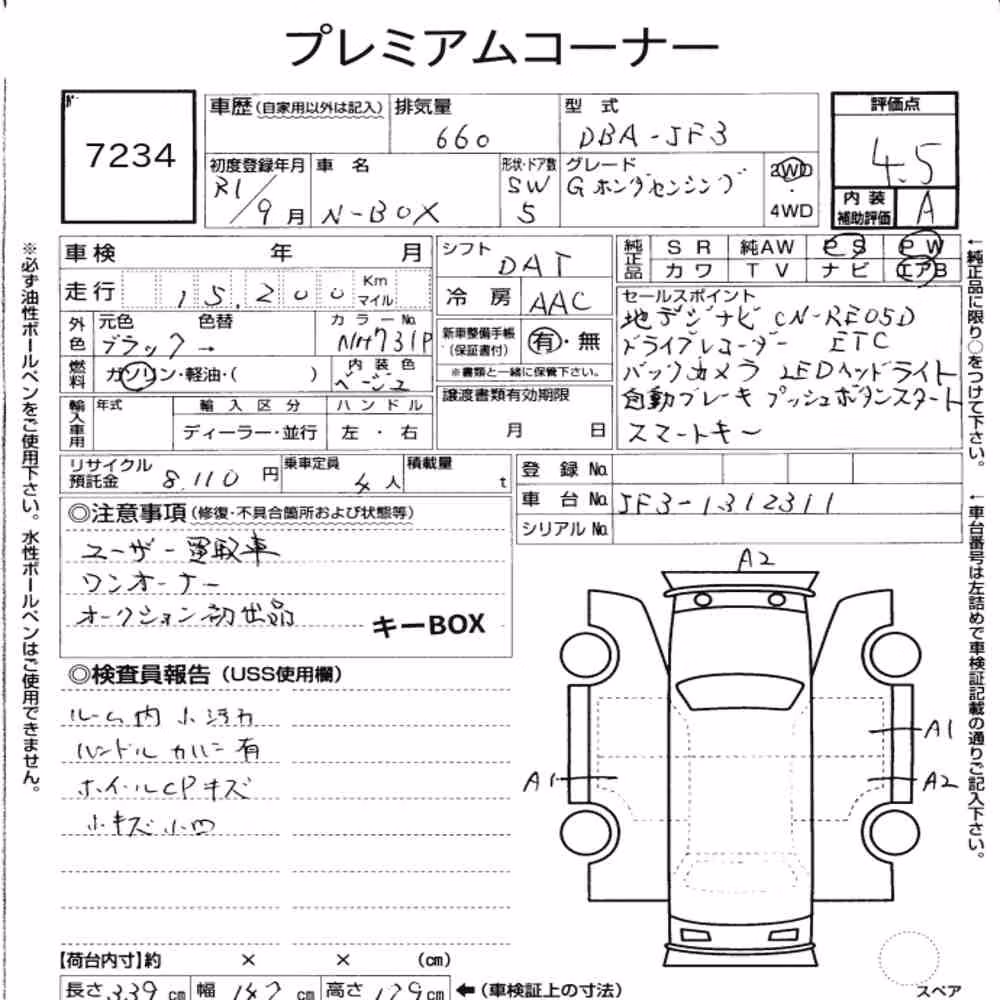 プレミアムコーナー
7234
車歴 (自家用以外は記入)
排気量
660
型 式
DBA-JF3
評価点
4.5
初度登録年月
R1/9月
車 名
N-BOX
形状・ドア数
SW
5
グレード
G ホンダセンシング
2WD
・
4WD
内 装
補助評価
A
車 検 年 月
シフト
DAT
純正品
SR 純AW PS PW
カワ TV ナビ エアB
走行 15,200 Km マイル
冷 房 AAC
外色
元色 色替
ブラック→
カラーNo.
NH731P
新車整備手帳
(保証書付)
有・無
※書類と一緒に保管下さい。
燃料
ガソリン・軽油・( )
内装色
ベージュ
セールスポイント
地デジナビ CN-RE05D
ドライブレコーダー ETC
バックカメラ LEDヘッドライト
自動ブレーキ プッシュボタンスタート
スマートキー
輸入車用
年式
輸入区分
ディーラー・並行
ハンドル
左・右
譲渡書類有効期限
月 日
リサイクル
預託金
8,110 円
乗車定員
4人
積載量
t
登 録 No.
車 台 No. JF3-1312311
シリアル No.
◎注意事項 (修復・不具合箇所および状態等)
ユーザー買取車
ワンオーナー
オークション初出品
キーBOX
◎検査員報告 (USS使用欄)
ルーム内 小汚れ
ハンドルカバー有
ホイールCPキズ
小キズ小凹
A2
A1
A1
A2
【荷台内寸】約 × × (cm)
長さ 339 cm 幅 147 cm 高さ 179 cm ←(車検証上の寸法)
スペア
※必ず油性ボールペンをご使用下さい。水性ボールペンはご使用できません。
←純正品に限り○をつけて下さい。
←車台番号は左詰めで車検証記載の通りご記入下さい。